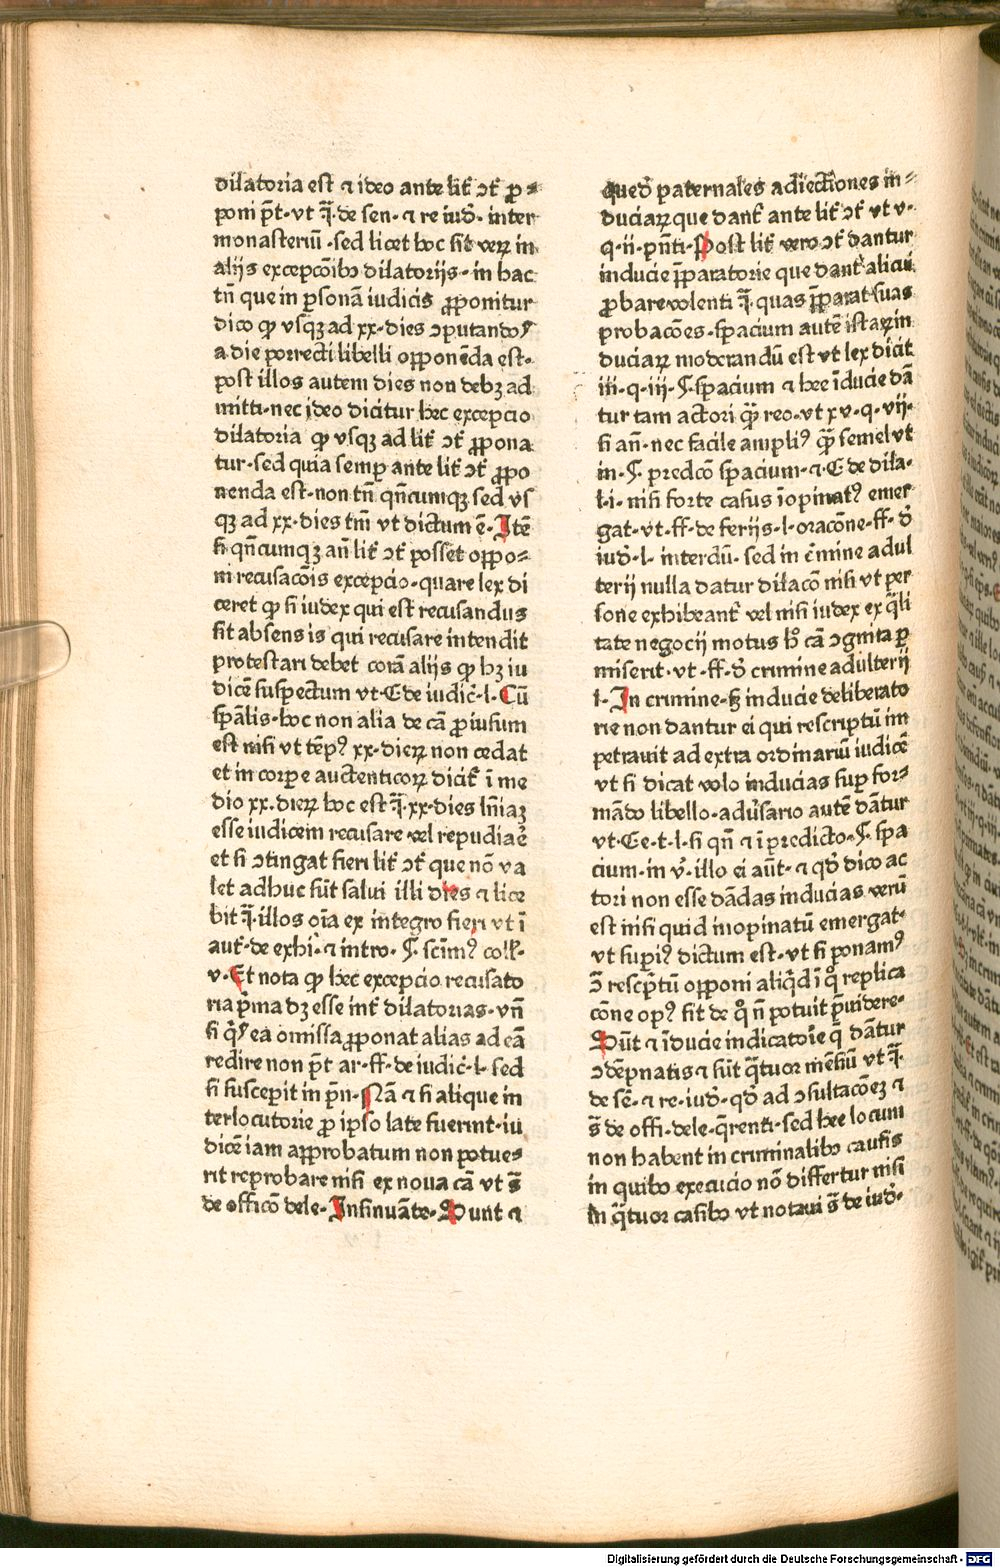 dilatoria est ⁊ ideo ante lit̃ ↄt̃ ꝓ⸗
poni p̃t·vt q̃·de sen·⁊ re iud̃·inter
monasteriũ·sed licet hoc sit veꝝ in
alijs excepcõibꝯ dilatorijs·in hac
tñ que in ꝑsonã iudicis ꝓponitur
dico ꝙ vsq̃ʒ ad xx·dies ↄputandos
a die porrecti libelli opponẽda est·
post illos autem dies non debʒ ad
mitti·nec ideo dicitur hec excepcio
dilatoria ꝙ vsqʒ ad lit̃ ↄt̃ ꝓpona
tur·sed quia semꝑ ante lit̃ ↄt̃ ꝓpo
nenda est·non tñ qñcumqʒ sed vs
qʒ ad xx·dies tm̃ vt dictum ẽ·Itẽ
si qñcumqʒ añ lit̃ ↄt̃ posset oppo⸗
ni recusacõis excepcio·quare lex di
ceret ꝙ si iudex qui est recusandus
sit absens is qui recusare intendit
protestari debet corã alijs ꝙ hʒ iu
dicẽ suspectum vt·C de iudic̃·l·Cũ
sp̃alis·hoc non alia de cã ꝓiusum
est nisi vt tẽpꝰ xx·dieꝝ non cedat
et in corpe auctenticoꝝ dicit̃ ĩ me
dio xx·dieꝝ hoc est q̃·xx·dies lñiaʒ
esse iudicem recusare vel repudiare
et si ↄtingat fieri lit̃ ↄt̃ que nõ va
let adhuc sũt salui illi dies ⁊ lice
bit q̃·illos oĩa ex integro fieri vt ĩ
aut̃·de exhi·⁊ intro·§·scim̃ꝰ coll·
v·Et nota ꝙ hec excepcio recusato
ria p̃ma dʒ esse int̃ dilatorias·vñ
si q̃s ea omissa ꝓponat alias ad eã
redire non p̃t ar·ff·de iudic̃·l·sed
si susceperit in p̃n·Nã ⁊ si alique in
terlocutorie ꝓ ipso late fuerint·iu
dicẽ iam approbatum non potue⸗
rit reprobare nisi ex noua cã vt s̃
de officõ dele·Insinuãte·Sunt ⁊
quedã paternales adiectiones in⸗
duciaꝝ que dant̃ ante lit̃ ↄt̃ vt v·
q·ii·pñti·Post lit̃ vero ↄt̃ dantur
inducie p̃paratorie que dant̃ alicui
ꝓbare volenti q̃·quas p̃parat suas
probacões·spacium autẽ istaꝝ in
duciaꝝ moderandũ est vt lex dicit
iii·q·iii·§·spacium ⁊ hee ĩducie dã
tur tam actori q̃ꝫ reo·vt xv·q·vii·
si añ·nec facile ampliꝰ q̃ꝫ semel vt
in·§ predcõ spacium·⁊·C de dila·
l·i·nisi forte casus ĩopinatꝰ emer
gat·vt·ff·de ferijs·l·oracõne·ff·d̃
iud̃·l·interdũ·sed in c̃mine adul
terij nulla datur dilacõ nisi vt per
sone exhibeant̃ vel nisi iudex ex q̃li
tate negocij motus hͦ cã ↄgnita ꝑ
miserit·vt·ff·d̃ crimine adulterij
l·In crimine·ʒ inducie deliberato
rie non dantur ei qui rescriptũ im
petrauit ad extra ordinariũ iudicẽ
vt si dicat volo inducias suꝑ for⸗
mãdo libello·adũsario autẽ dãtur
vt·C·e·t·l·si qñ ⁊ ĩ predicto·§·spa
cium·in v̾·illo ei aũt·⁊ qd̃ dico ac
tori non esse dãdas inducias verũ
est nisi quid inopinatũ emergat·
vt supiꝰ dictum est·vt si ponamꝰ
ↄ̃ rescp̃tũ opponi aliq̃d ĩ qͦ replica
cõne opꝰ sit de qͦ ñ potuit p̃uidere·
Sũt ⁊ ĩducie indicatorie q̃ dãtur
ↄdẽpnatis ⁊ sũt q̃tuor mẽsiũ vt q̃·
de sẽ·⁊ re·iud̃·qd̃ ad ↄsultacõeʒ ⁊
s̃ de offi·dele·q̃renti·sed hee locum
non habent in criminalibꝯ causis
in quibꝯ execucio nõ differtur nisi
in q̃tuor casibꝯ vt notaui s̃ de iud̃·
Digitalisierung gefördert durch die Deutsche Forschungsgemeinschaft - DFG